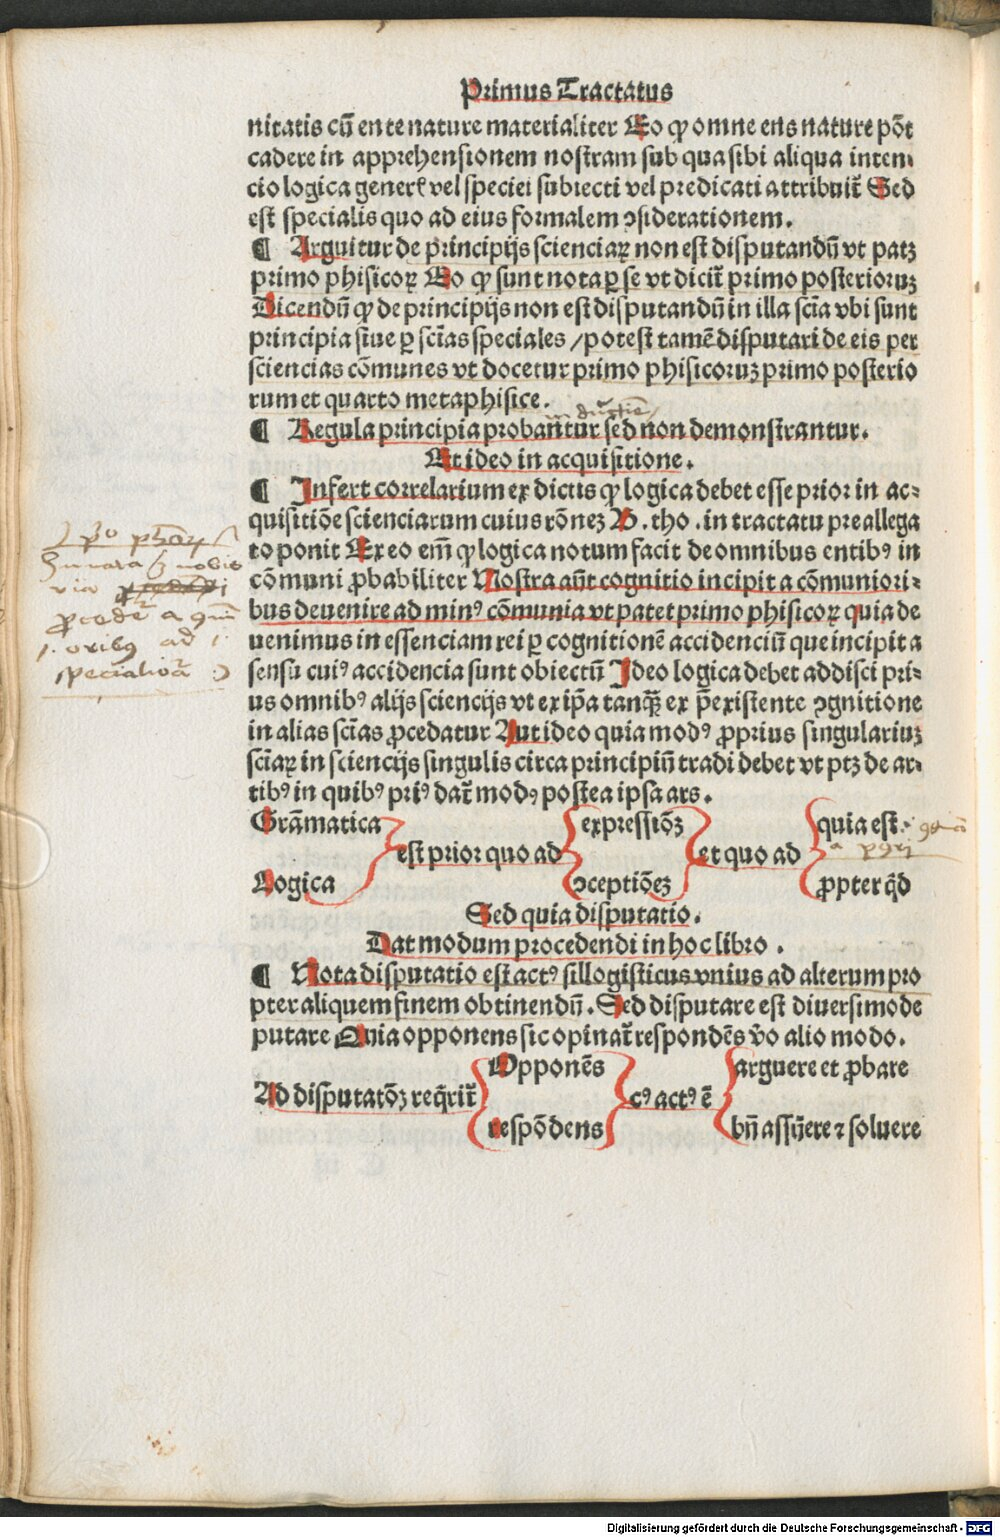 Primus Tractatus
nitatis cū ente nature materialiter Eo ꝙ omne ens nature pōt
cadere in apprehensionem nostram sub qua sibi aliqua inten
cio logica generꝭ vel speciei subiecti vel predicati attribuit̄ Sed
est specialis quo ad eius formalem ↄsiderationem.
¶ Arguitur de principijs scienciaꝝ non est disputandū vt patꝫ
primo phisicoꝝ Eo ꝙ sunt nota ꝑ se vt dicit̄ primo posterioruꝫ
Dicendū ꝙ de principijs non est disputandū in illa scīa vbi sunt
principia siue ꝑ scīas speciales / potest tamē disputari de eis per
sciencias cōmunes vt docetur primo phisicoruꝫ primo posterio
rum et quarto metaphisice.
in ductiē /
¶ Regula principia probantur sed non demonstrantur.
Et ideo in acquisitione.
¶ Infert correlarium ex dictis ꝙ logica debet esse prior in ac⸗
quisitiōe scienciarum cuius rōneꝫ B. tho. in tractatu preallega
to ponit Ex eo em̄ ꝙ logica notum facit de omnibus entibꝰ in
cōmuni ꝓbabiliter Nostra aūt cognitio incipit a cōmuniori⸗
bus deuenire ad minꝰ cōmunia vt patet primo phisicoꝝ quia de
uenimus in essenciam rei ꝑ cognitionē accidenciū que incipit a
sensu cuiꝰ accidencia sunt obiectū Ideo logica debet addisci pri⸗
us omnibꝰ alijs sciencijs vt ex ip̄a tanꝗ̄ ex p̄existente ↄgnitione
in alias scīas ꝓcedatur Aut ideo quia modꝰ ꝓprius singulariuꝫ
scīaꝝ in sciencijs singulis circa principiū tradi debet vt ptꝫ de ar⸗
tibꝰ in quibꝰ priꝰ dat̄ modꝰ postea ipsa ars.
procede a
specialiora
Grāmatica
Logica
est prior quo ad
expressiōꝫ
ↄceptiōeꝫ
et quo ad
quia est.
ꝓpter qͥd
Sed quia disputatio.
Dat modum procedendi in hoc libro.
¶ Nota disputatio est actꝰ sillogisticus vnius ad alterum pro
pter aliquem finem obtinendū. Sed disputare est diuersimode
putare Quia opponens sic opinat̄ respondēs v̄o alio modo.
Ad disputatōꝫ reqͥrit̄
Opponēs
respōdens
cꝰ actꝰ ē
arguere et ꝓbare
bn̄ assūere ⁊ soluere
Digitalisierung gefördert durch die Deutsche Forschungsgemeinschaft - DFG